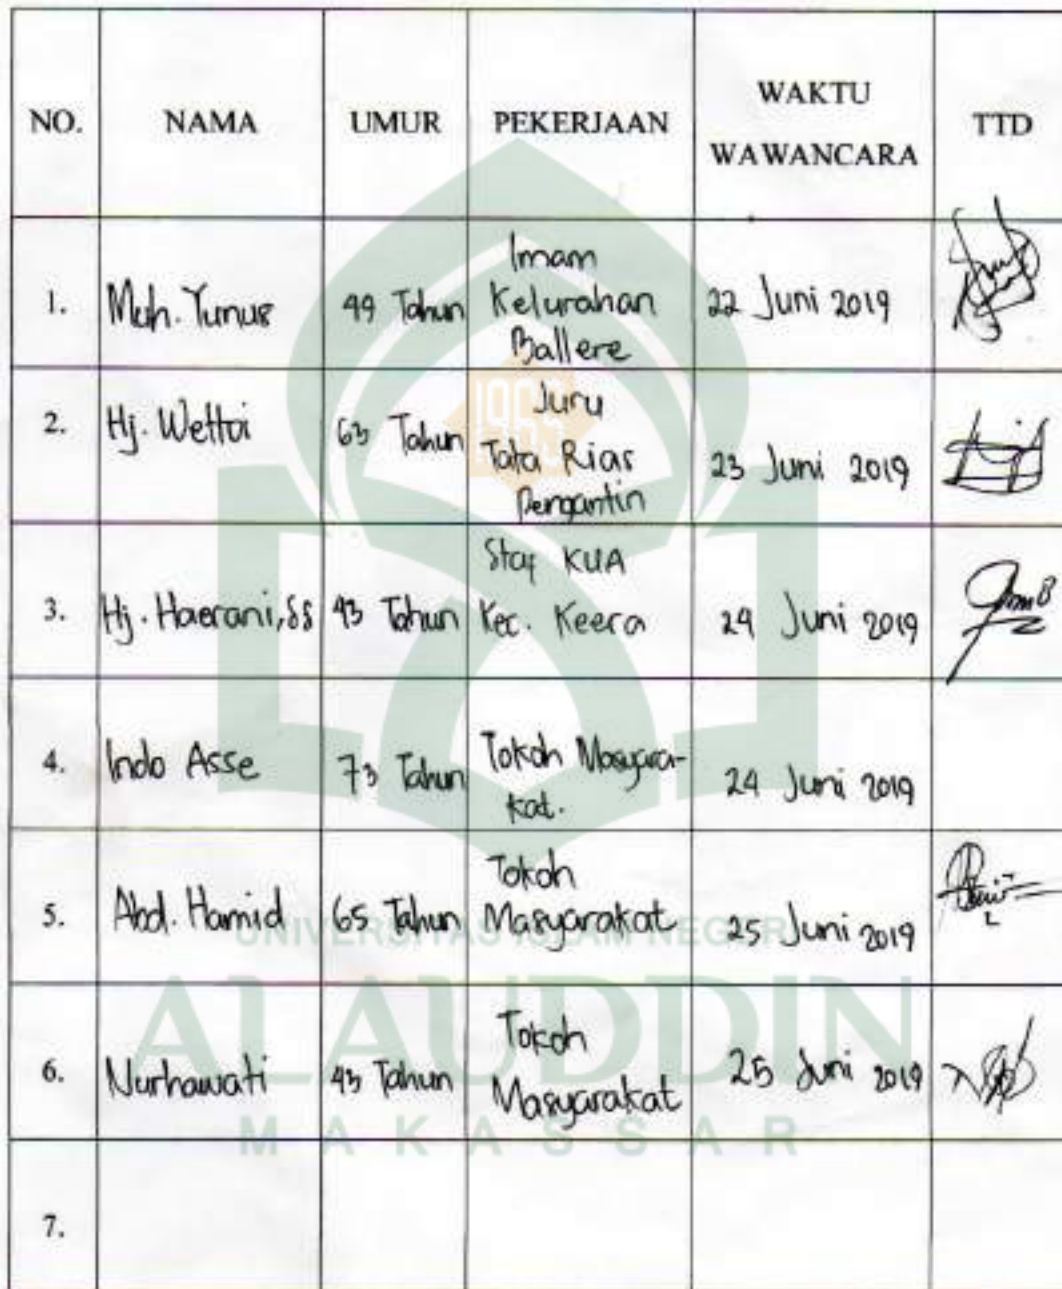 NO. NAMA UMUR PEKERJAAN WAKTU WAWANCARA TTD
1. Muh. Yunus 49 Tahun Imam Kelurahan Ballere 22 Juni 2019
2. Hj. Wettoi 63 Tahun Juru Tata Rias Pengantin 23 Juni 2019
3. Hj. Haerani, SS 43 Tahun Staf KUA Kec. Keera 24 Juni 2019
4. Indo Asse 73 Tahun Tokoh Masyara-kat. 24 Juni 2019
5. Abd. Hamid 65 Tahun Tokoh Masyarakat 25 Juni 2019
6. Nurhawati 43 Tahun Tokoh Masyarakat 25 Juni 2019
7.
1965
UNIVERSITAS ISLAM NEGERI
ALAUDDIN
MAKASSAR